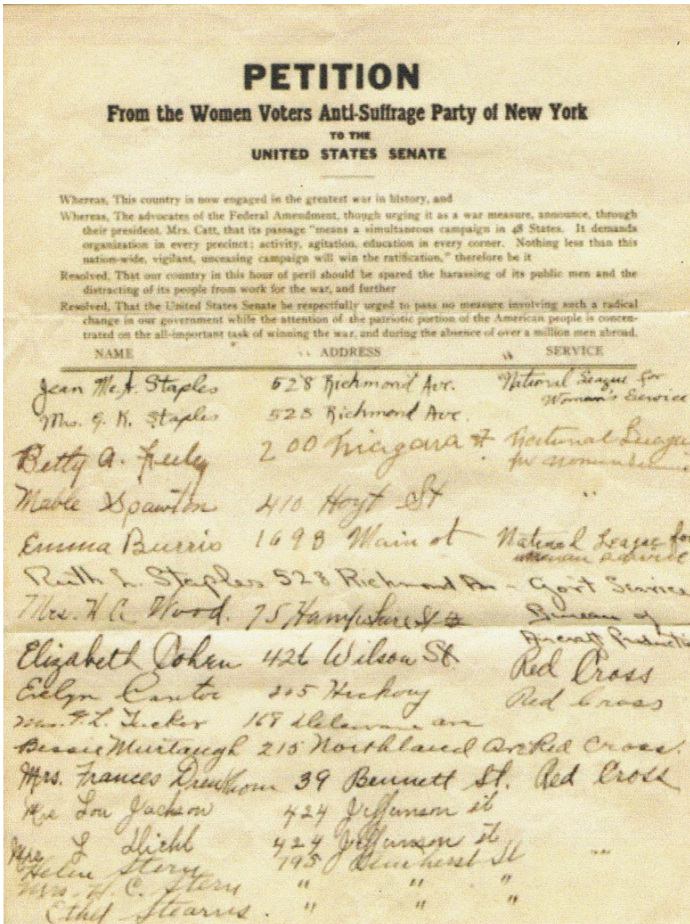 PETITION
From the Women Voters Anti-Suffrage Party of New York
TO THE
UNITED STATES SENATE
Whereas, This country is now engaged in the greatest war in history, and
Whereas, The advocates of the Federal Amendment, though urging it as a war measure, announce, through
their president, Mrs. Catt, that its passage "means a simultaneous campaign in 48 States. It demands
organization in every precinct; activity, agitation, education in every corner. Nothing less than this
nation-wide, vigilant, unceasing campaign will win the ratification," therefore be it
Resolved, That our country in this hour of peril should be spared the harassing of its public men and the
distracting of its people from work for the war, and further
Resolved, That the United States Senate be respectfully urged to pass no measure involving such a radical
change in our government while the attention of the patriotic portion of the American people is concen-
trated on the all-important task of winning the war, and during the absence of over a million men abroad.
NAME ADDRESS SERVICE
Jean Mc.A. Staples 528 Richmond Ave. National League for
Woman's Service
Mrs. G. K. Staples 528 Richmond Ave.
Betty A. 200 Niagara St National League
for
Mable Spawton 410 Hoyt St "
Emma Burris 1698 Main st National League for
woman service
Ruth L. Staples 528 Richmond Av - Gov't Service
Mrs. H. A. Wood. 75 Hampshire St Bureau of
Aircraft Production
Elizabeth Cohen 426 Wilson St. Red Cross
Evelyn Cantor 205 Hickory Red Cross
Mrs. F. L. Tucker 168 Delaware ave
Bessie Murtaugh 215 Northland Ave Red Cross.
Mrs. Frances 39 Bennett St. Red Cross
Mrs Lou Jackson 424 Jefferson st
Mrs L Diehl 424 Jefferson st
Helen Stern 195 St "
Mrs. H. C. Stern " " "
Ethel Stearns. " " "